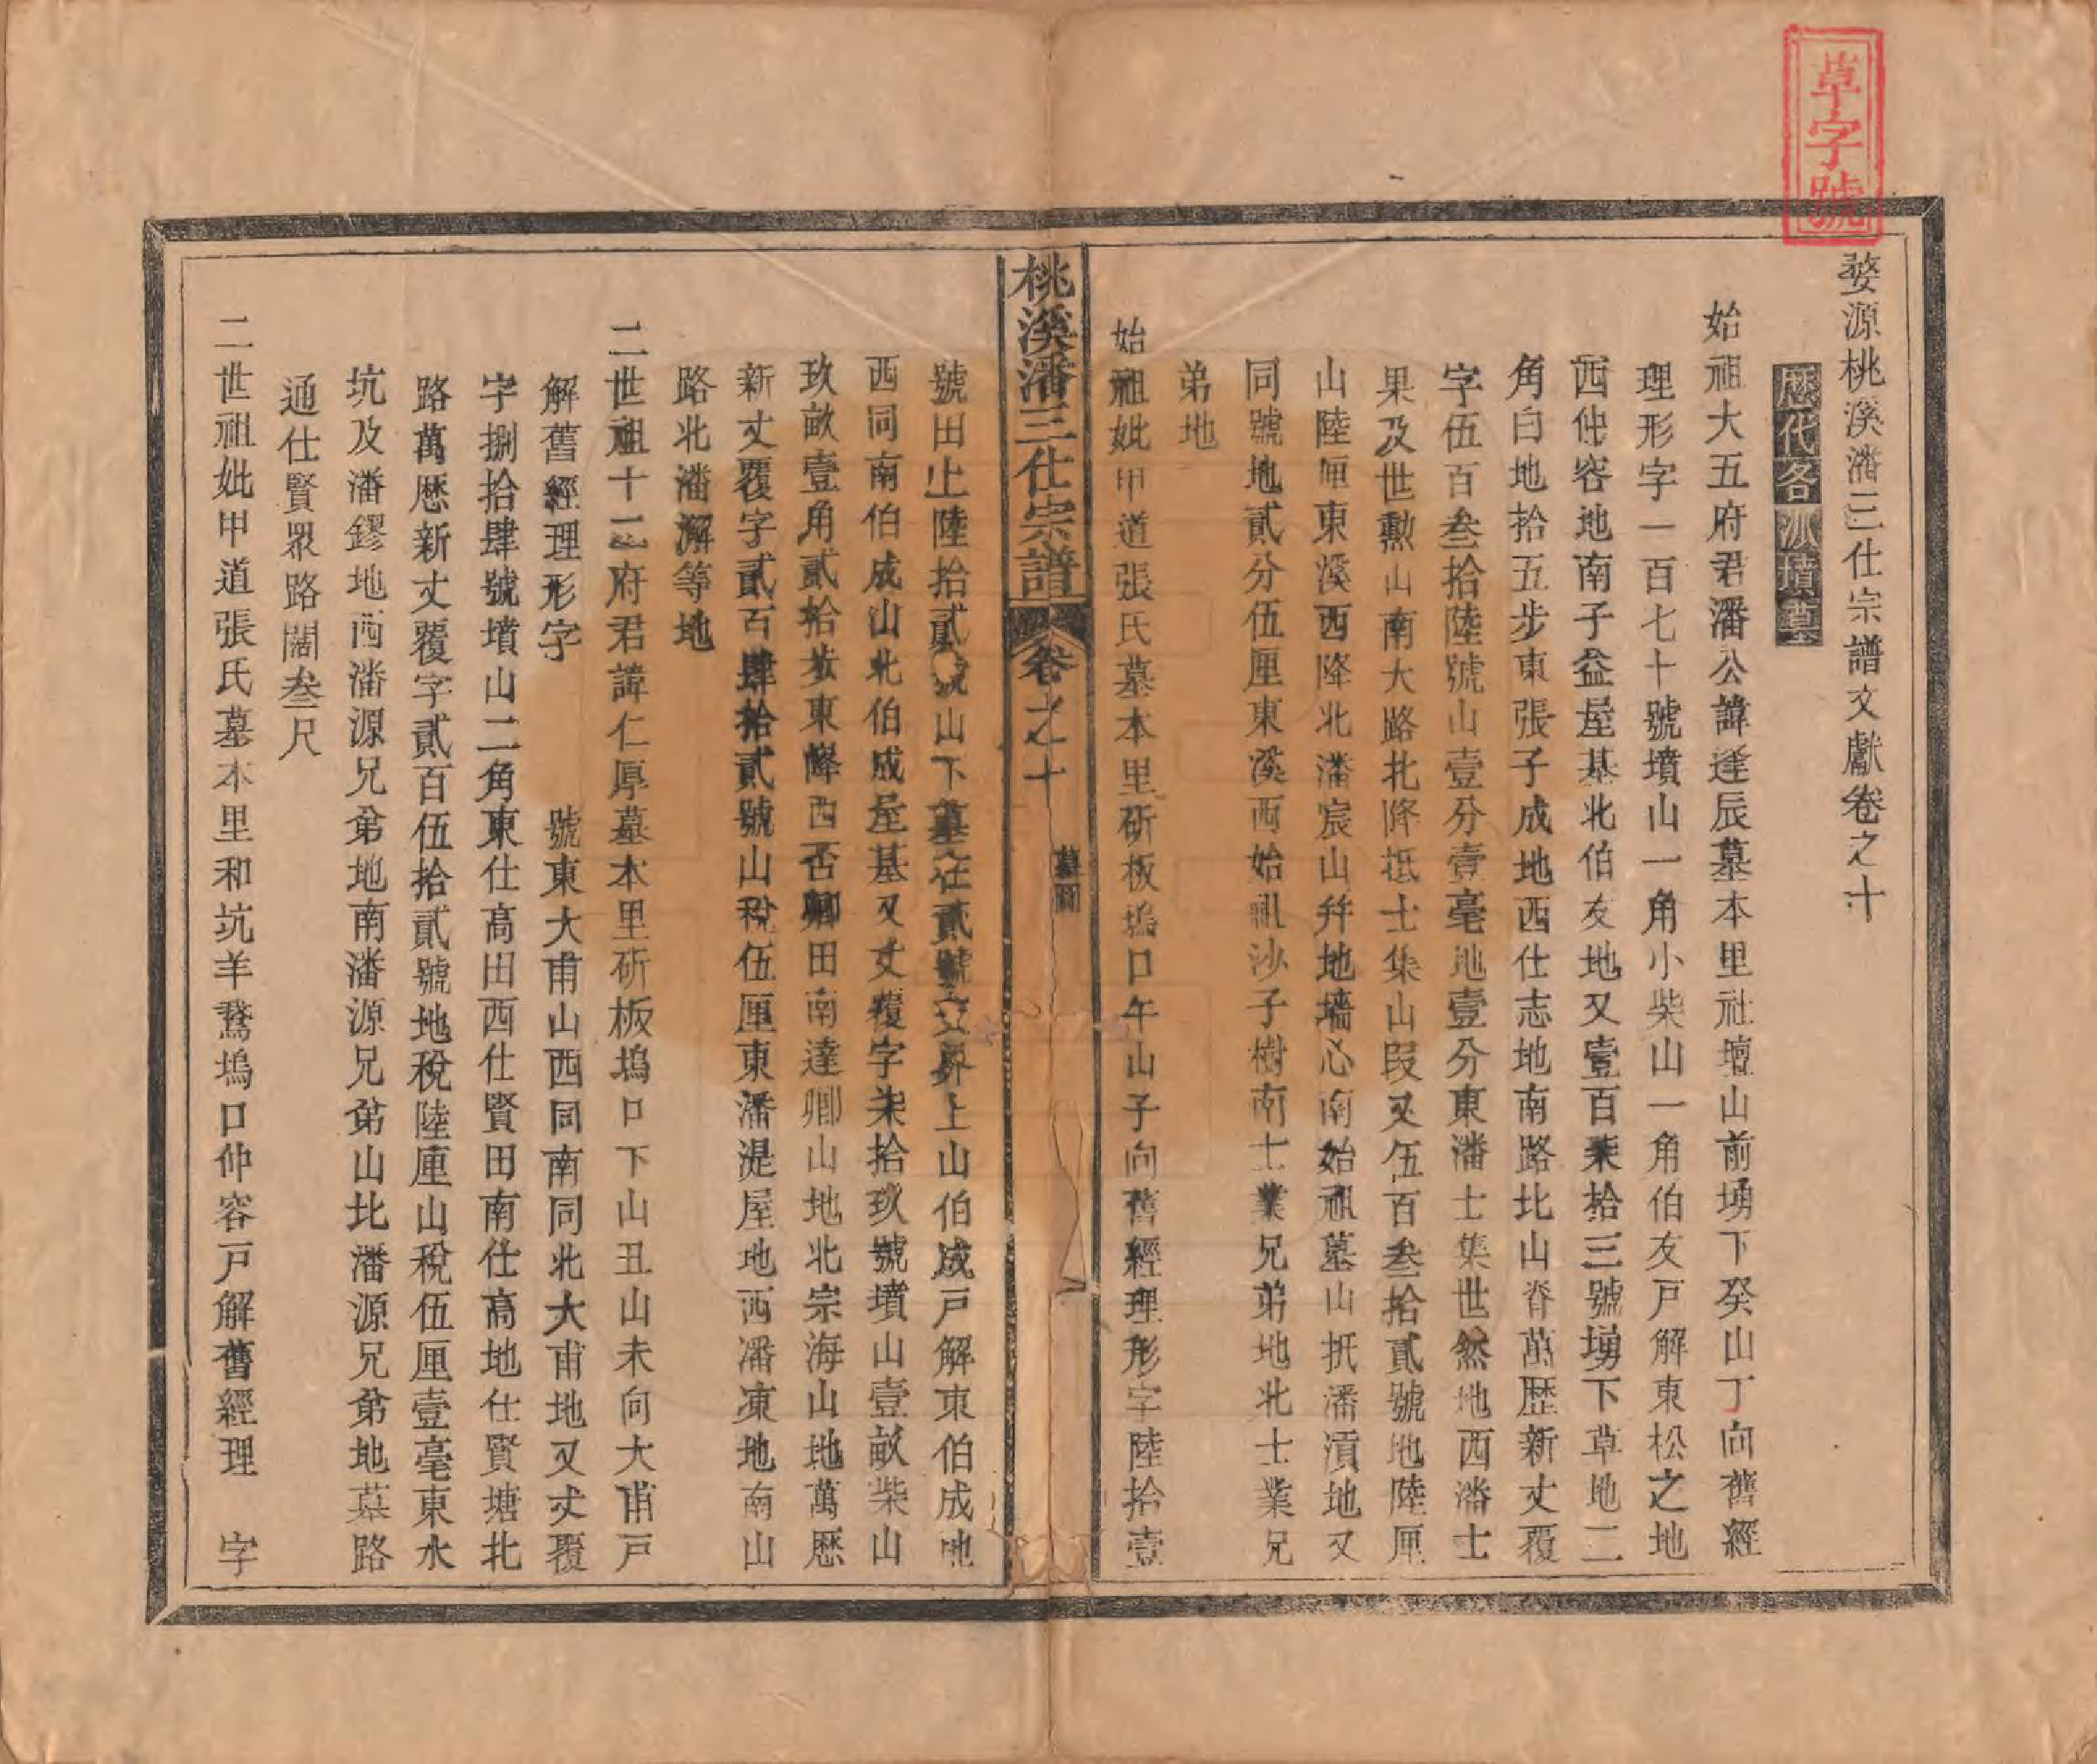 草字號
婺源桃溪潘三仕宗譜文獻卷之十
歷代各派墳墓
始祖大五府君潘公諱逢辰墓本里社壇山前塝下癸山丁向舊經
理形字一百七十號墳山一角小柴山一角伯友戶解東松之地
西仲容地南子益屋基北伯友地又壹百柒拾三號塝下草地二
角白地拾五步東張子成地西仕志地南路北山脊萬歷新丈覆
字伍百叁拾陸號山壹分壹毫地壹分東潘士集世然地西潘士
果及世勲山南大路北降抵士集山叚又伍百叁拾貳號地陸厘
山陸厘東溪西降北潘宸山幷地墻心南始祖墓山抵潘濆地又
同號地貳分伍厘東溪西始祖沙子樹南士業兄弟地北士業兄
弟地
始祖妣甲道張氏墓本里斫板塢口午山子向舊經理形字陸拾壹
桃溪潘三仕宗譜 卷之十 墓圖
號田止陸拾貳號山下墓在貳號交界上山伯成戶解東伯成地
西同南伯成山北伯成屋基又丈覆字柒拾玖號墳山壹畝柴山
玖畝壹角貳拾步東降西呑卿田南達卿山地北宗海山地萬歷
新丈覆字貳百肆拾貳號山稅伍厘東潘混屋地西潘凍地南山
路北潘澥等地
二世祖十三府君諱仁厚墓本里斫板塢口下山丑山未向大甫戶
解舊經理形字 號東大甫山西同南同北大甫地又丈覆
字捌拾肆號墳山二角東仕高田西仕賢田南仕高地仕賢塘北
路萬歷新丈覆字貳百伍拾貳號地稅陸厘山稅伍厘壹毫東水
坑及潘鏐地西潘源兄弟地南潘源兄弟山北潘源兄弟地墓路
通仕賢眾路闊叁尺
二世祖妣甲道張氏墓本里和坑羊鵞塢口仲容戶解舊經理 字